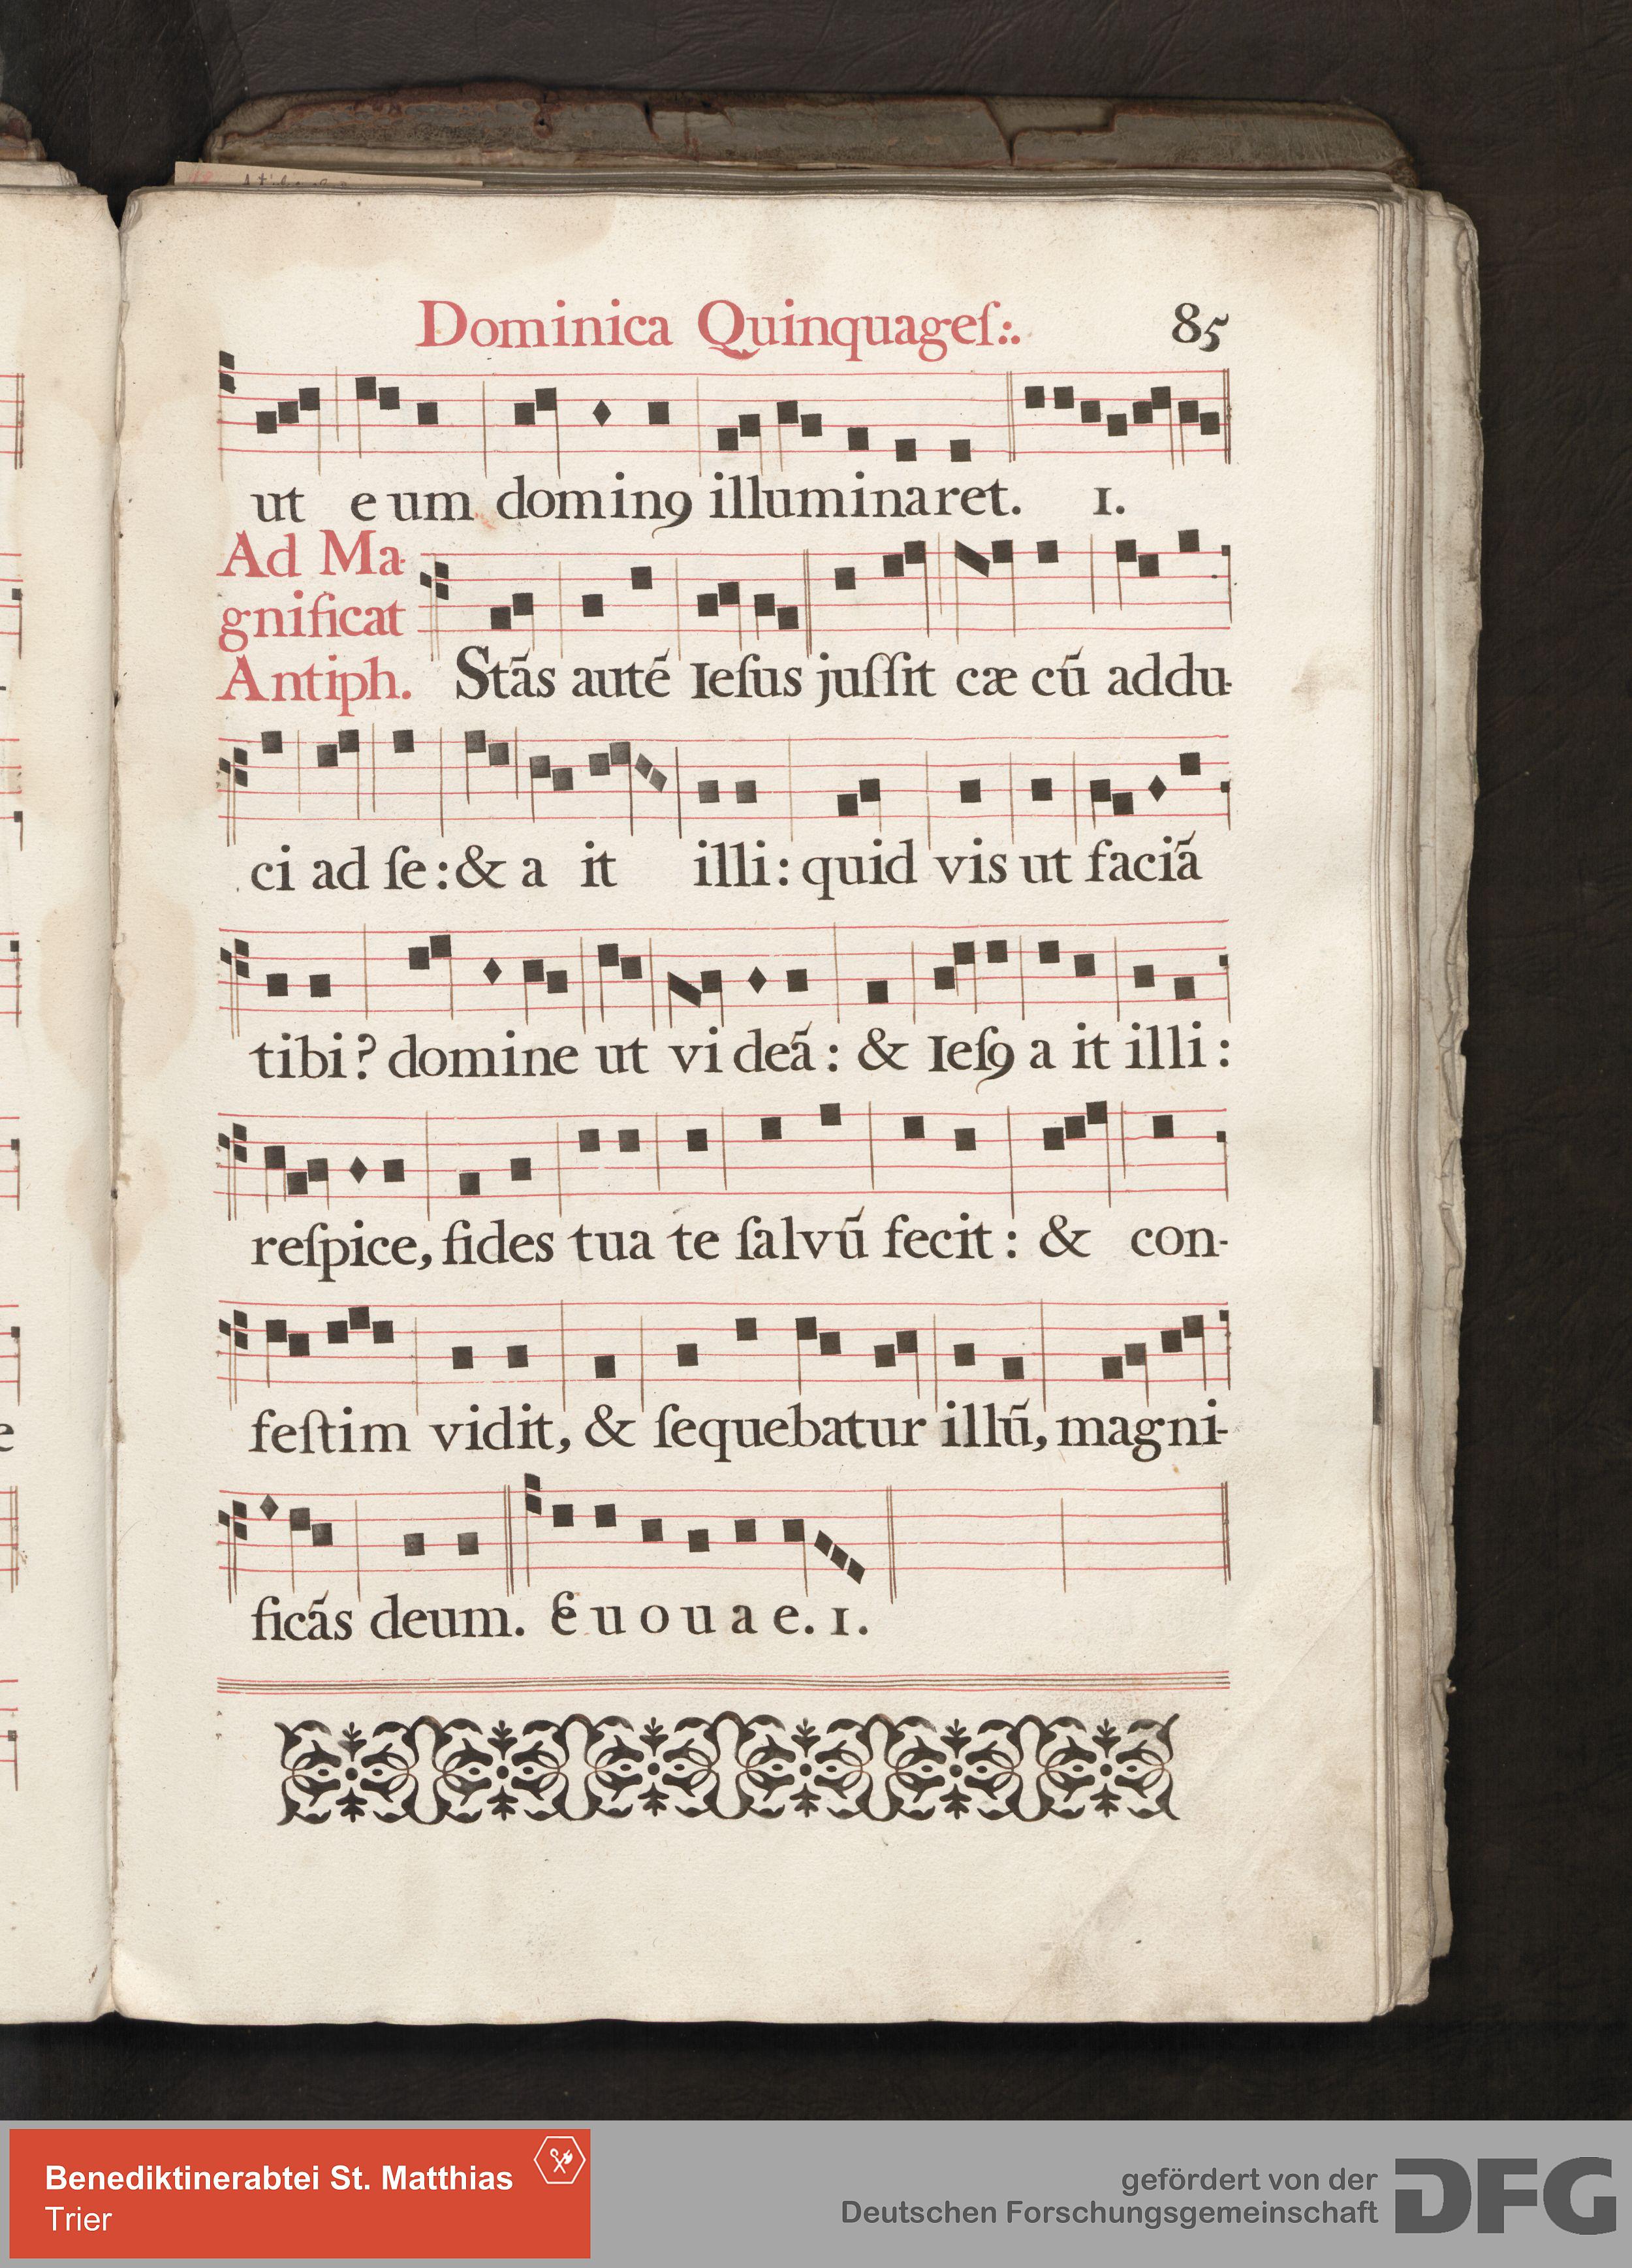 Dominica Quinquageſ:. 85
ut eum dominꝯ illuminaret. 1.
Ad Ma-
gnificat
Antiph. Stãs autẽ Ieſus juſſit cæ cũ addu-
ci ad ſe: & a it illi: quid vis ut faciã
tibi? domine ut vi deã: & Ieſꝯ a it illi:
reſpice, fides tua te ſalvũ fecit: & con-
feſtim vidit, & ſequebatur illũ, magni-
ficãs deum. E u o u a e. 1.
Benediktinerabtei St. Matthias
Trier
gefördert von der
Deutschen Forschungsgemeinschaft
DFG